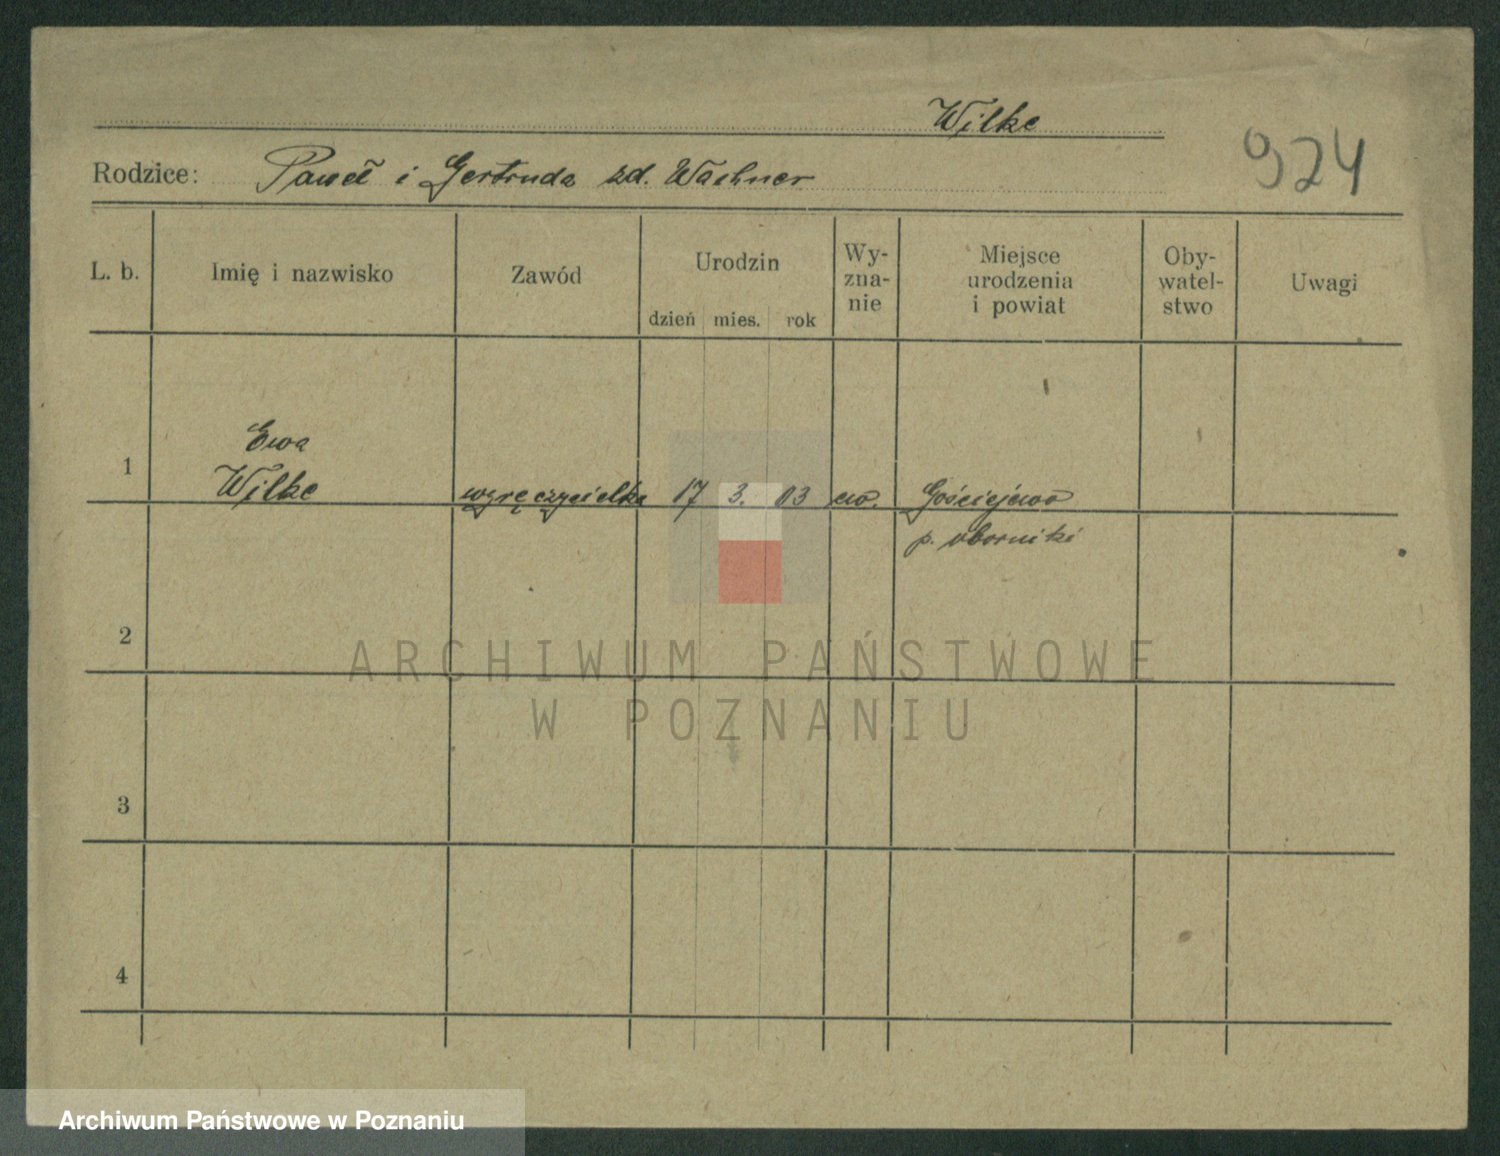 Wilke
924
Rodzice: Paweł i Gertruda zd. Wachner
L. b.
Imię i nazwisko
Zawód
Urodzin
dzień mies. rok
Wy-
zna-
nie
Miejsce
urodzenia
i powiat
Oby-
watel-
stwo
Uwagi
1
Ewa
Wilke
wyręczycielka
17 3. 03
ew.
Gościejewo
p. oborniki
2
3
4
ARCHIWUM PAŃSTWOWE
W POZNANIU
Archiwum Państwowe w Poznaniu